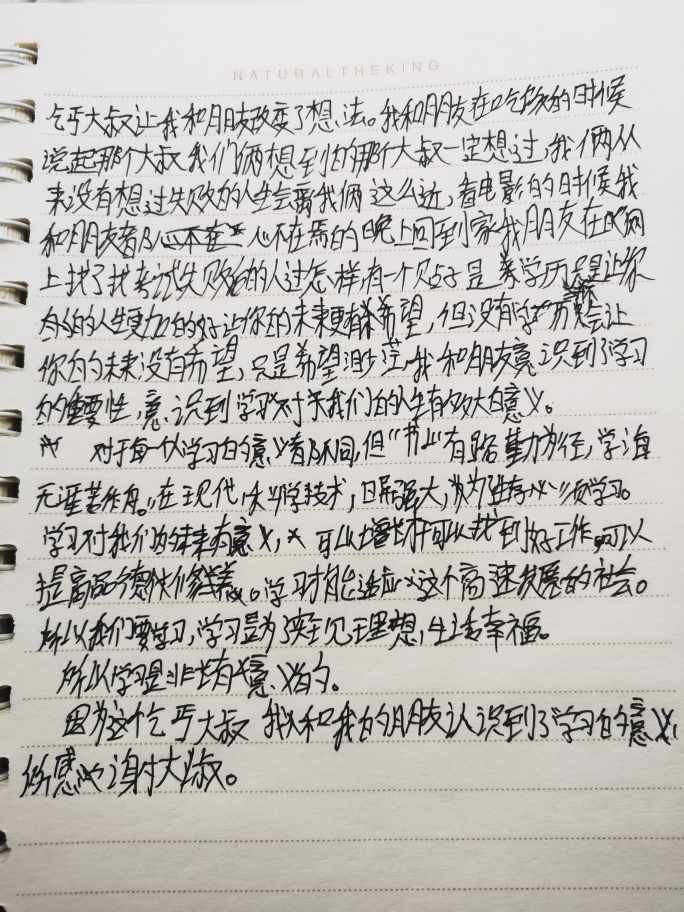 NATURALTHEKING
乞丐大叔让我和朋友改变了想法。我和朋友在吃饭的时候
说起那个大叔 我们俩想到的那个大叔一定想过，我们俩从
来没有想过失败的人生会离我俩 这么近，看电影的的时候我
和朋友都 心不在焉的 晚上回到家我朋友在网
上找了找考试失败的人过怎样，有一个帖子是 学历只是让你
的人生更加的好 让你的未来更有希望，但没有学历 会让
你的未来没有希望，只是希望渺茫，我和朋友意识到了学习
的重要性，意识到学习对于我们的人生有多大的意义。
对于每个人学习的意义都不同，但“书山”有路勤为径，学海
无涯苦作舟。在现代，科学技术，日益强大，为了生存 必须学习。
学习对我们的未来有意义， 可以增长才 可以找到好工作，可以
提高品德 修养。学习才能适应 这个高速发展的社会。
所以我们要学习，学习是为了实现理想，生活幸福。
所以学习是非常有意义的。
因为这个乞丐大叔 我和我的朋友认识到了学习的意义，
所感 谢大叔。